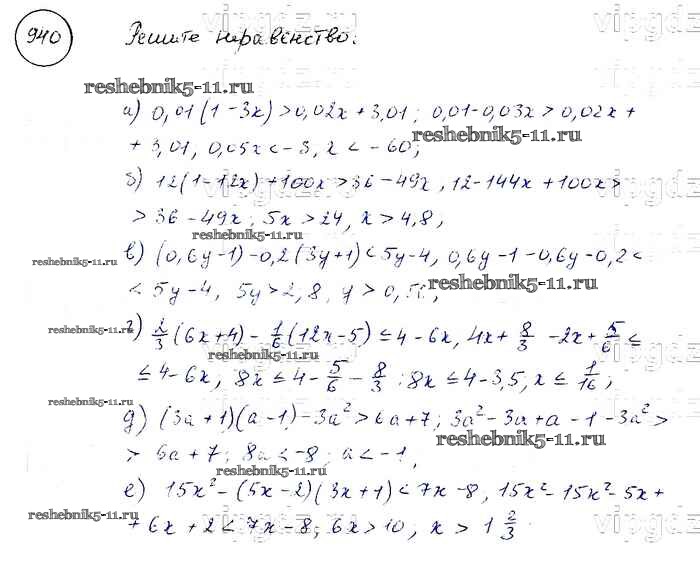 940 Решите неравенство:
vipgdz
reshebnik5-11.ru
а) 0,01(1-3x)>0,02x+3,01; 0,01-0,03x>0,02x+
reshebnik5-11.ru
+3,01, 0,05x<-3, x<-60;
б) 12(1-12x)+100x>36-49x, 12-144x+100x>
>36-49x; 5x>24, x>4,8,
reshebnik5-11.ru
в) (0,6y-1)-0,2(3y+1)<5y-4, 0,6y-1-0,6y-0,2<
reshebnik5-11.ru
reshebnik5-11.ru
<5y-4, 5y>2,8, y>0,56,
г) 2/3(6x+4)-1/6(12x-5)≤4-6x, 4x+8/3-2x+5/6≤
reshebnik5-11.ru
≤4-6x, 8x≤4-5/6-8/3; 8x≤4-3,5, x≤1/16;
reshebnik5-11.ru
д) (3a+1)(a-1)-3a²>6a+7; 3a²-3a+a-1-3a²>
reshebnik5-11.ru
>6a+7; 8a<-8; a<-1,
reshebnik5-11.ru
е) 15x²-(5x-2)(3x+1)<7x-8, 15x²-15x²-5x+
reshebnik5-11.ru
+6x+2<7x-8; 6x>10, x>1 2/3
vipgdz